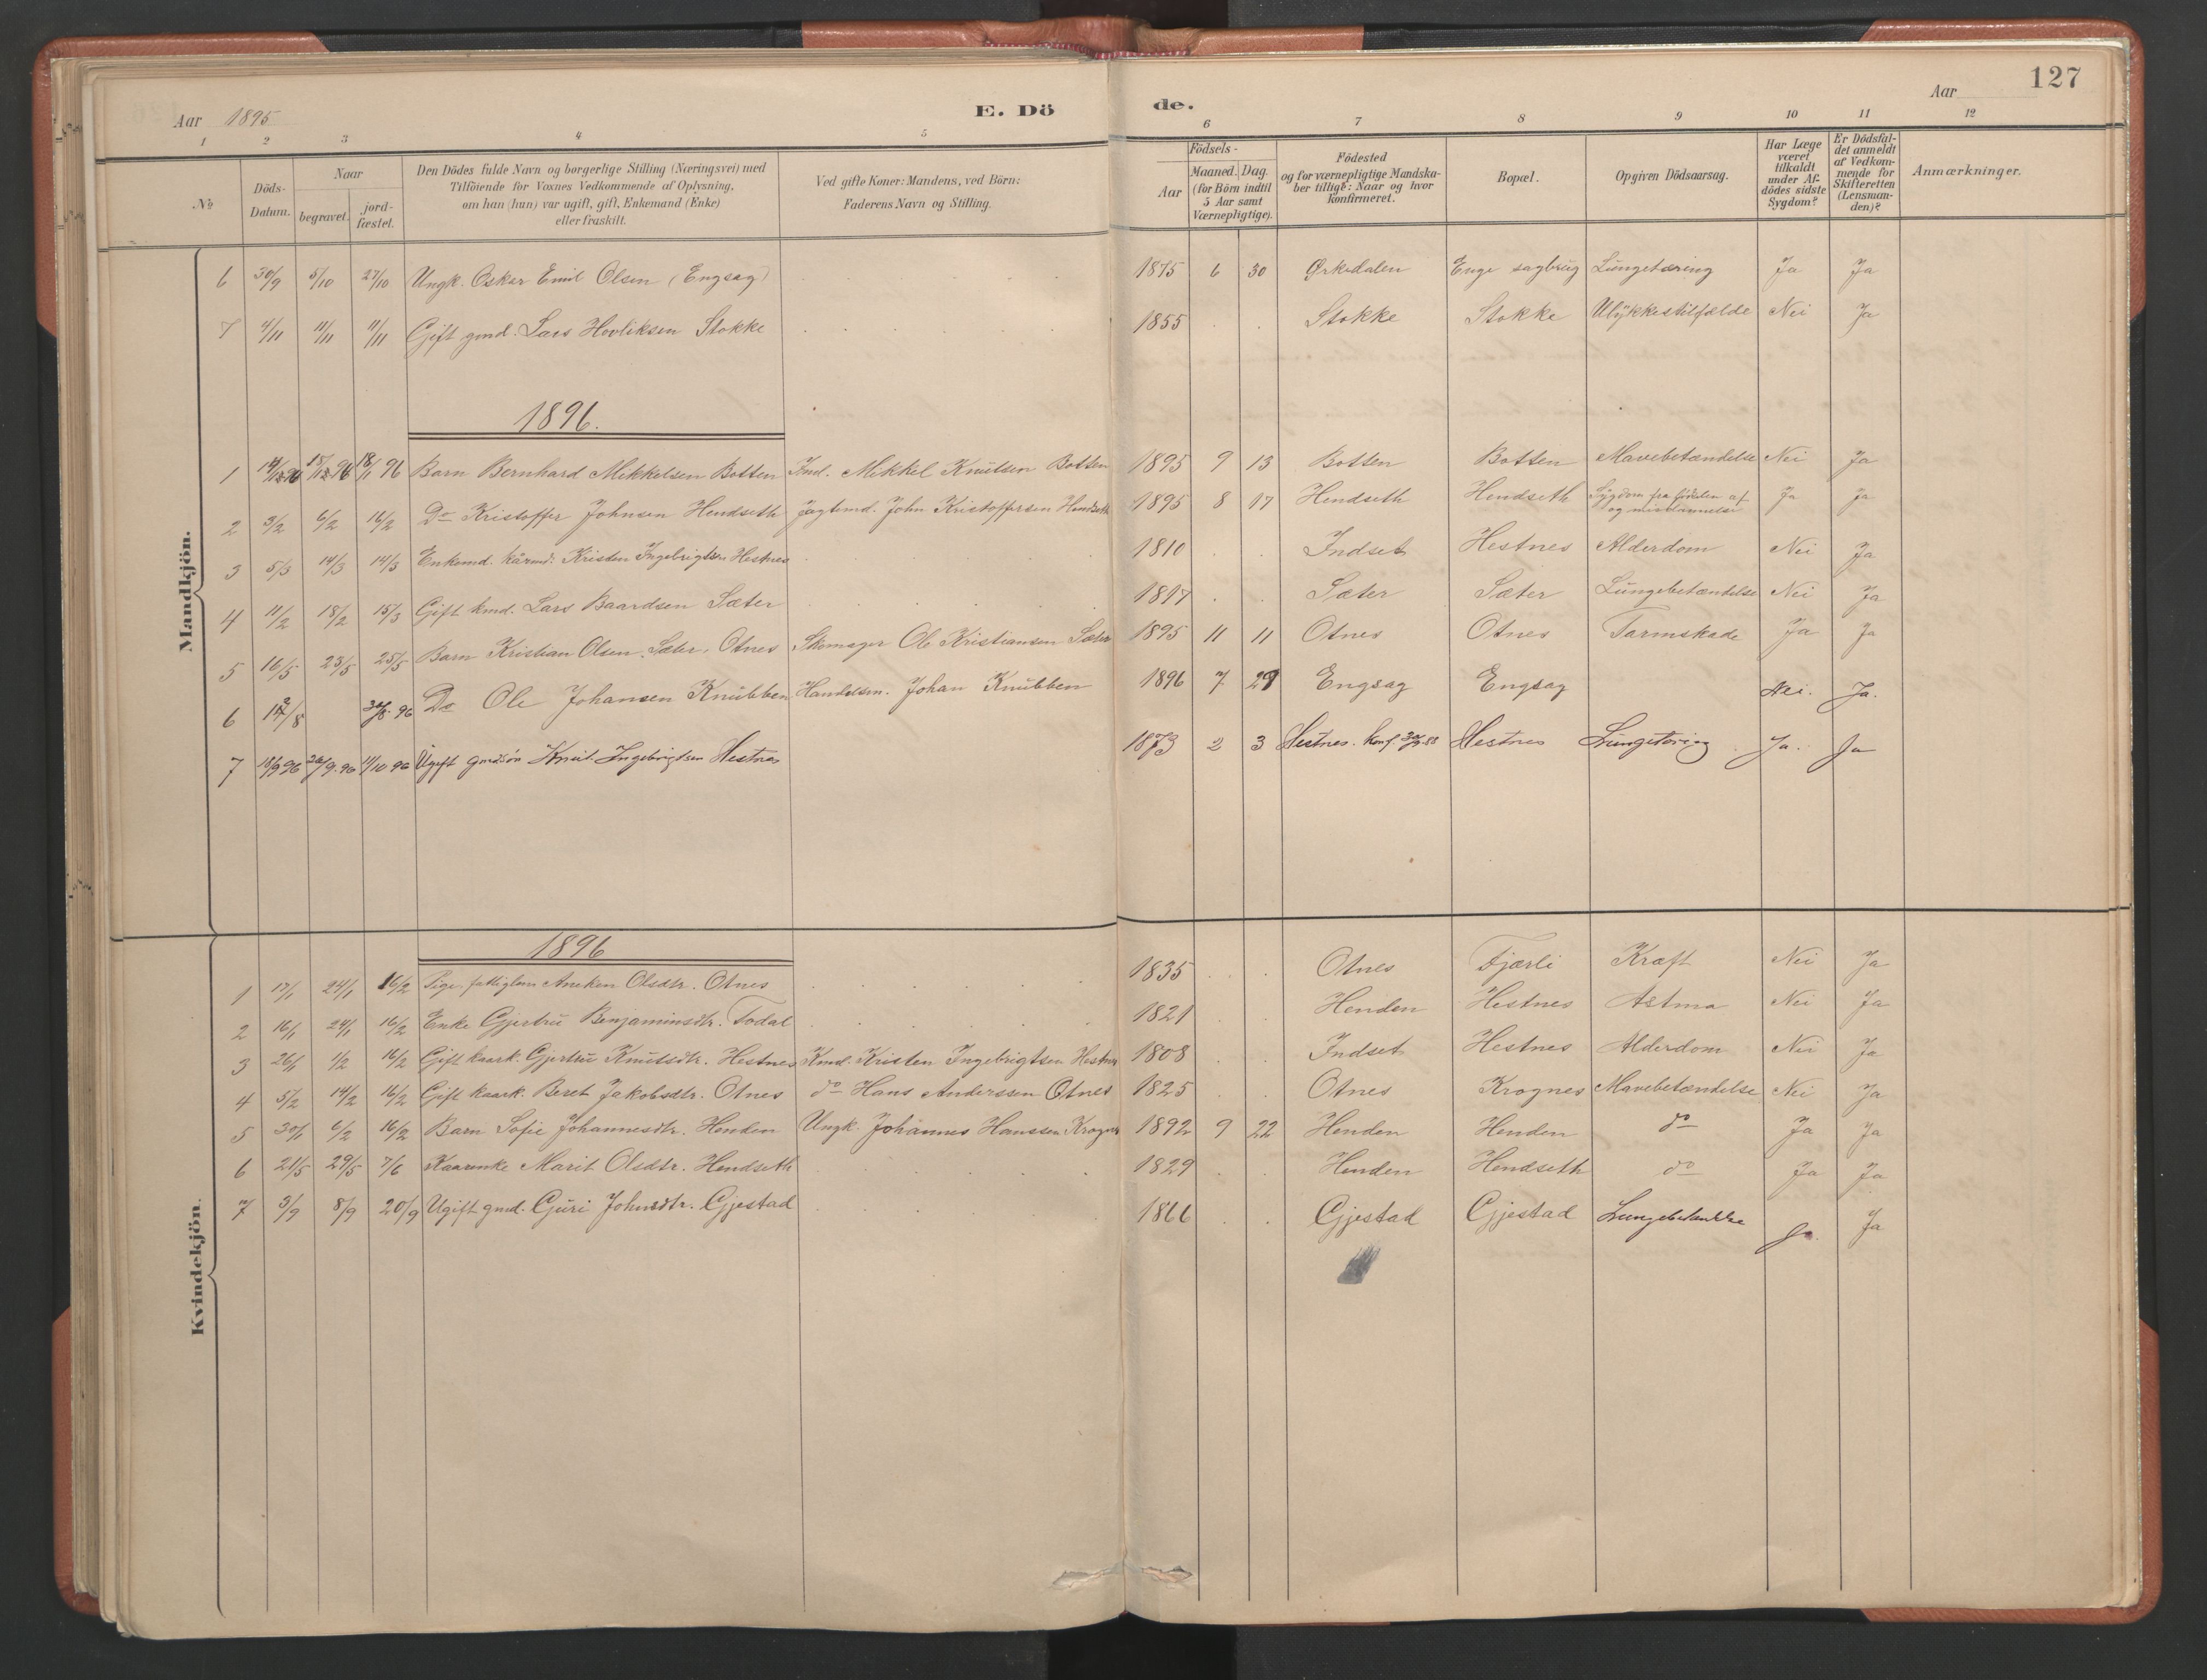 127
Aar 1895 E. Dö de. Aar
1 2 3 4 5 6 7 8 9 10 11 12
№ Döds-Datum. Naar begravet. jord-fæstet. Den Dödes fulde Navn og borgerlige Stilling (Næringsvei) med Tilföiende for Voxnes Vedkommende af Oplysning, om han (hun) var ugift, gift, Enkemand (Enke) eller fraskilt. Ved gifte Koner: Mandens, ved Börn: Faderens Navn og Stilling. Födsels- Aar Maaned. Dag. (for Börn indtil 5 Aar samt Værnepligtige). Födested og for værnepligtige Mandskaber tillige: Naar og hvor konfirmeret. Bopæl. Opgiven Dödsaarsag. Har Læge været tilkaldt under Afdödes sidste Sygdom? Er Dödsfaldet anmeldt af Vedkommende for Skifteretten (Lensmanden)? Anmærkninger.
Mandkjön.
6 30/9 5/10 27/10 Ungk. Oskar Emil Olsen (Engsag) 1875 6 30 Ørkedalen Enge sagbrug Lungetæring Ja Ja
7 4/11 11/11 11/11 Gift gmd. Lars Hovliksen Stokke 1855 Stokke Stokke Ulykkestilfælde Nei Ja
1896.
1 96 15/1 96 18/1 96 Barn Bernhard Mikkelsen Botten Ind. Mikkel Knutsen Botten 1895 9 13 Botten Botten Mavebetændelse Nei Ja
2 3/2 6/2 16/2 Do Kristoffer Johnsen Hendseth Jagtmd. John Kristoffersen Hendseth 1895 8 17 Hendseth Hendseth Sygdom fra fødselen af og misdannelse Ja Ja
3 5/3 14/3 14/3 Enkemd. kårmd. Kristen Ingebrigtsen Hestnes 1810 Indset Hestnes Alderdom Nei Ja
4 11/2 18/2 15/3 Gift kmd. Lars Baardsen Sæter 1817 Sæter Sæter Lungebetændelse Nei Ja
5 16/5 23/5 25/5 Barn Kristian Olsen Sæter, Otnes Skomager Ole Kristiansen Sæter 1895 11 11 Otnes Otnes Tarmskade Ja Ja
6 96 Do Ole Johansen Knubben Handelsm. Johan Knubben 1896 7 29 Engsag Engsag Nei. Ja.
7 18/9 96 26/9.96 11/10 96 Ugift gmdsøn Knut Ingebrigtsen Hestnes 1873 2 3 Hestnes. konf. Hestnes Lungetæring Ja. Ja
Kvindekjön.
1896
1 17/1 24/1 16/2 Pige, fattiglem Aneken Olsdtr. Otnes 1835 Otnes Fjærli Kræft Nei Ja
2 16/1 24/1 16/2 Enke Gjertru Benjaminsdtr. Todal 1821 Henden Hestnes Astma Nei Ja
3 26/1 1/2 16/2 Gift kaark. Gjertru Knutsdtr. Hestnes Kmd. Kristen Ingebrigtsen Hestnes 1808 Indset Hestnes Alderdom Nei Ja
4 5/2 14/2 16/2 Gift kaark. Beret Jakobsdtr. Otnes do Hans Anderssen Otnes 1825 Otnes Krognes Mavebetændelse Nei Ja
5 30/1 6/2 16/2 Barn Sofie Johannesdtr. Henden Ungk. Johannes Hanssen Krognes 1892 9 22 Henden Henden do Ja Ja
6 21/5 29/5 7/6 Kaarenke Marit Olsdtr. Hendseth 1829 Henden Hendseth do Ja Ja
7 3/9 8/9 20/9 Ugift gmd. Guri Johnsdtr. Gjestad 1866 Gjestad Gjestad Ja. Ja